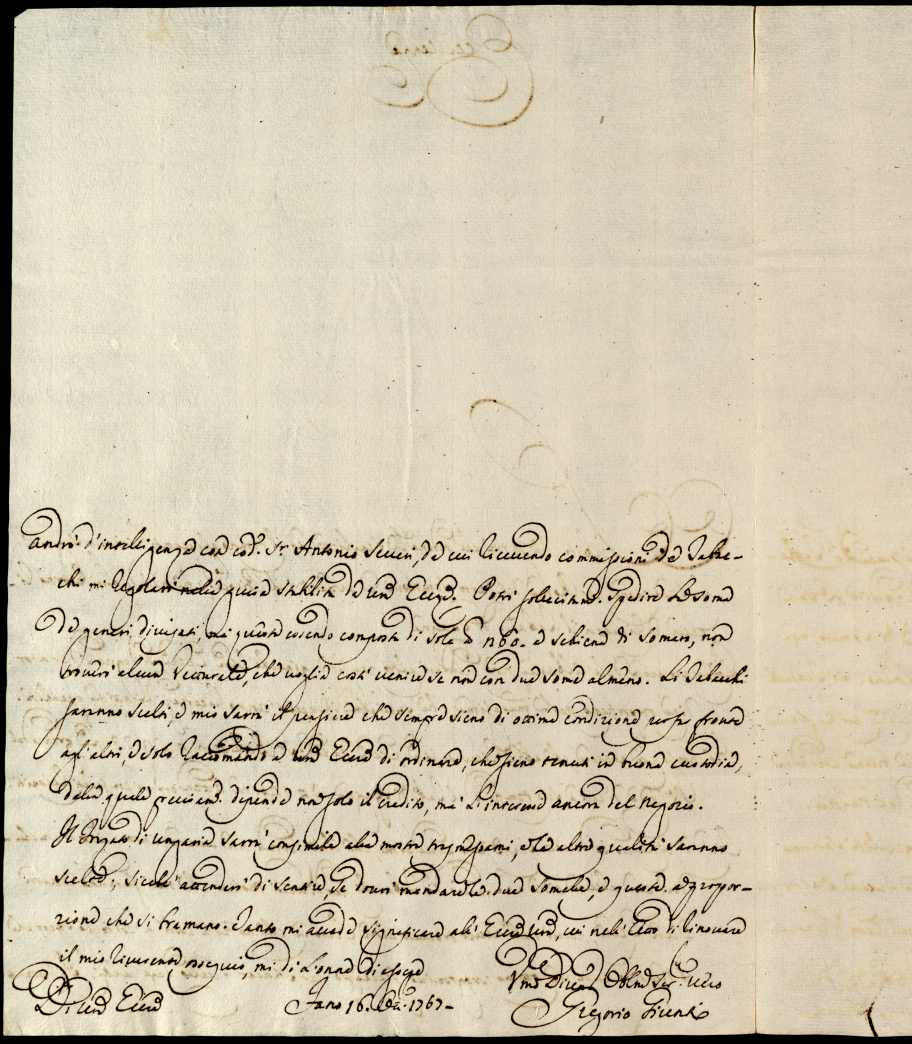 andrò d'intelligenza con cod.º Sr Antonio Severi, da cui ricevendo commissioni de Tabac-
chi mi regolerò nella guisa stabilita da vra Eccza. Potrò sollecitamte. spedire Le some
De generi divisati, ma queste essendo composte di sole 160. a schiena di somaro, non
troverò alcun Vetturale, che voglia costì venire se non con due some almeno. Li Tabacchi
saranno scelti, e mio sarrà il pensiere che sempre sieno di ottima condizione fronte
agli altri, e solo raccomando a vra Eccza di ordinare, che sieno tenuti in buona custodia,
dalla quale precisamte. dipende non solo il credito, ma L'interesse ancora del negozio.
Il di ungaria sarrà consimile alla mostra trasmessami, e le altre qualità saranno
scelte; sicché attenderò di sentire, se dovrò mandare le due somelle, e queste a propor-
zione che si bramano. Tanto mi accade significare all' Eccza vra, cui nell' atto di rinovare
il mio riverente ossequio, mi dò L'onore di essere
Di vra Eccza
Fano 16. 1767-
Vmo Divmo Obbmo Ser.re vero
Gregorio